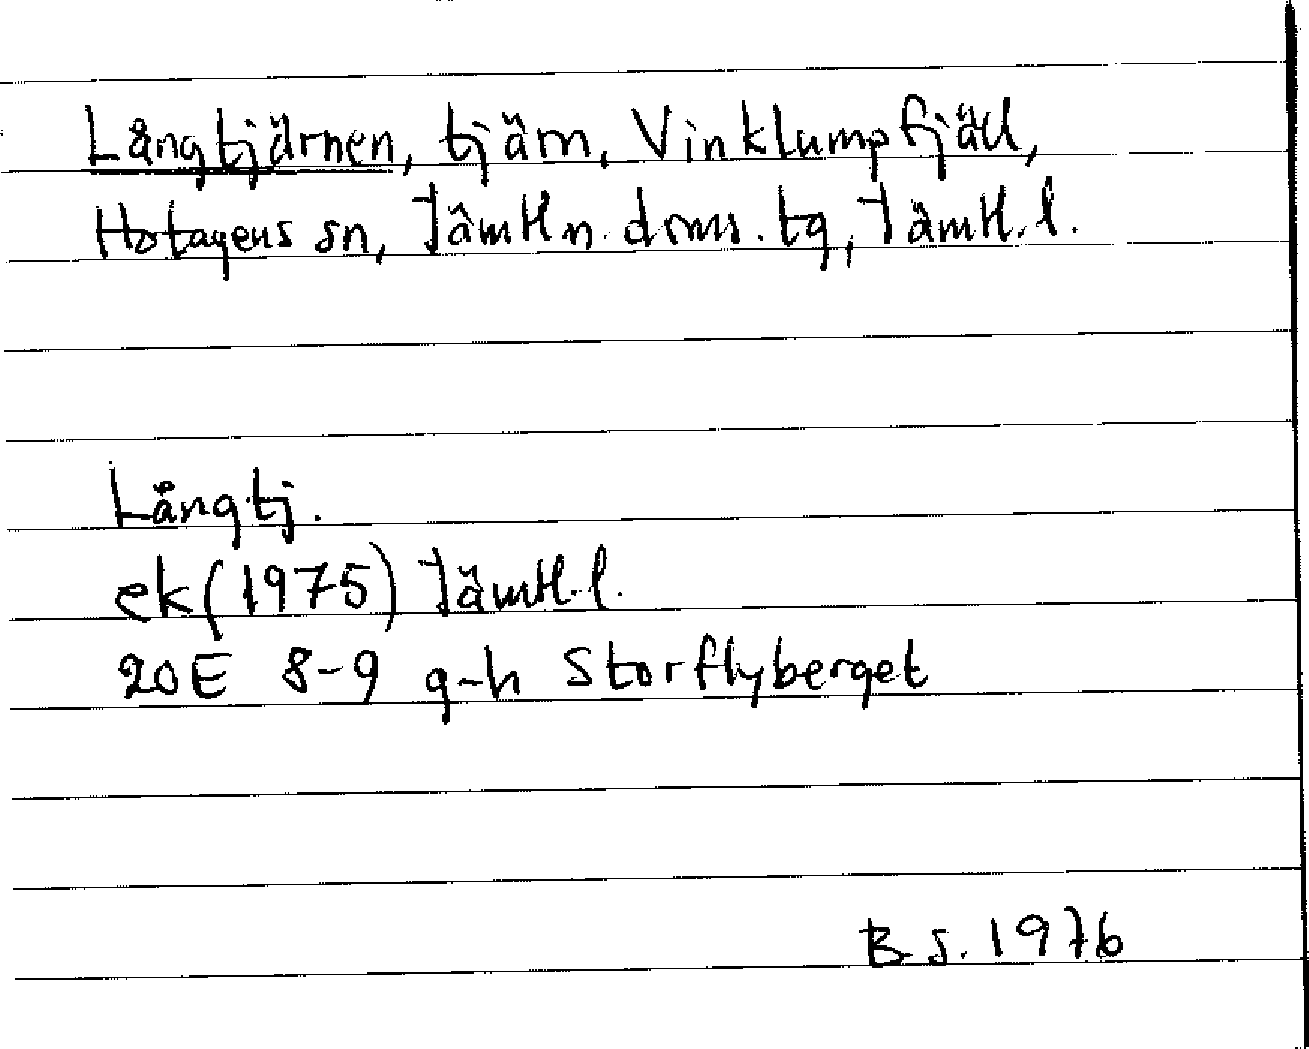 Långtjärnen, tjärn, Vinklumpfjäll,
Hotagens sn, Jämtl. n. doms. tg, Jämtl. l.
Långtj.
ek (1975) Jämtl. l.
20E 8-9 g-h Storflyberget
B.S. 1976